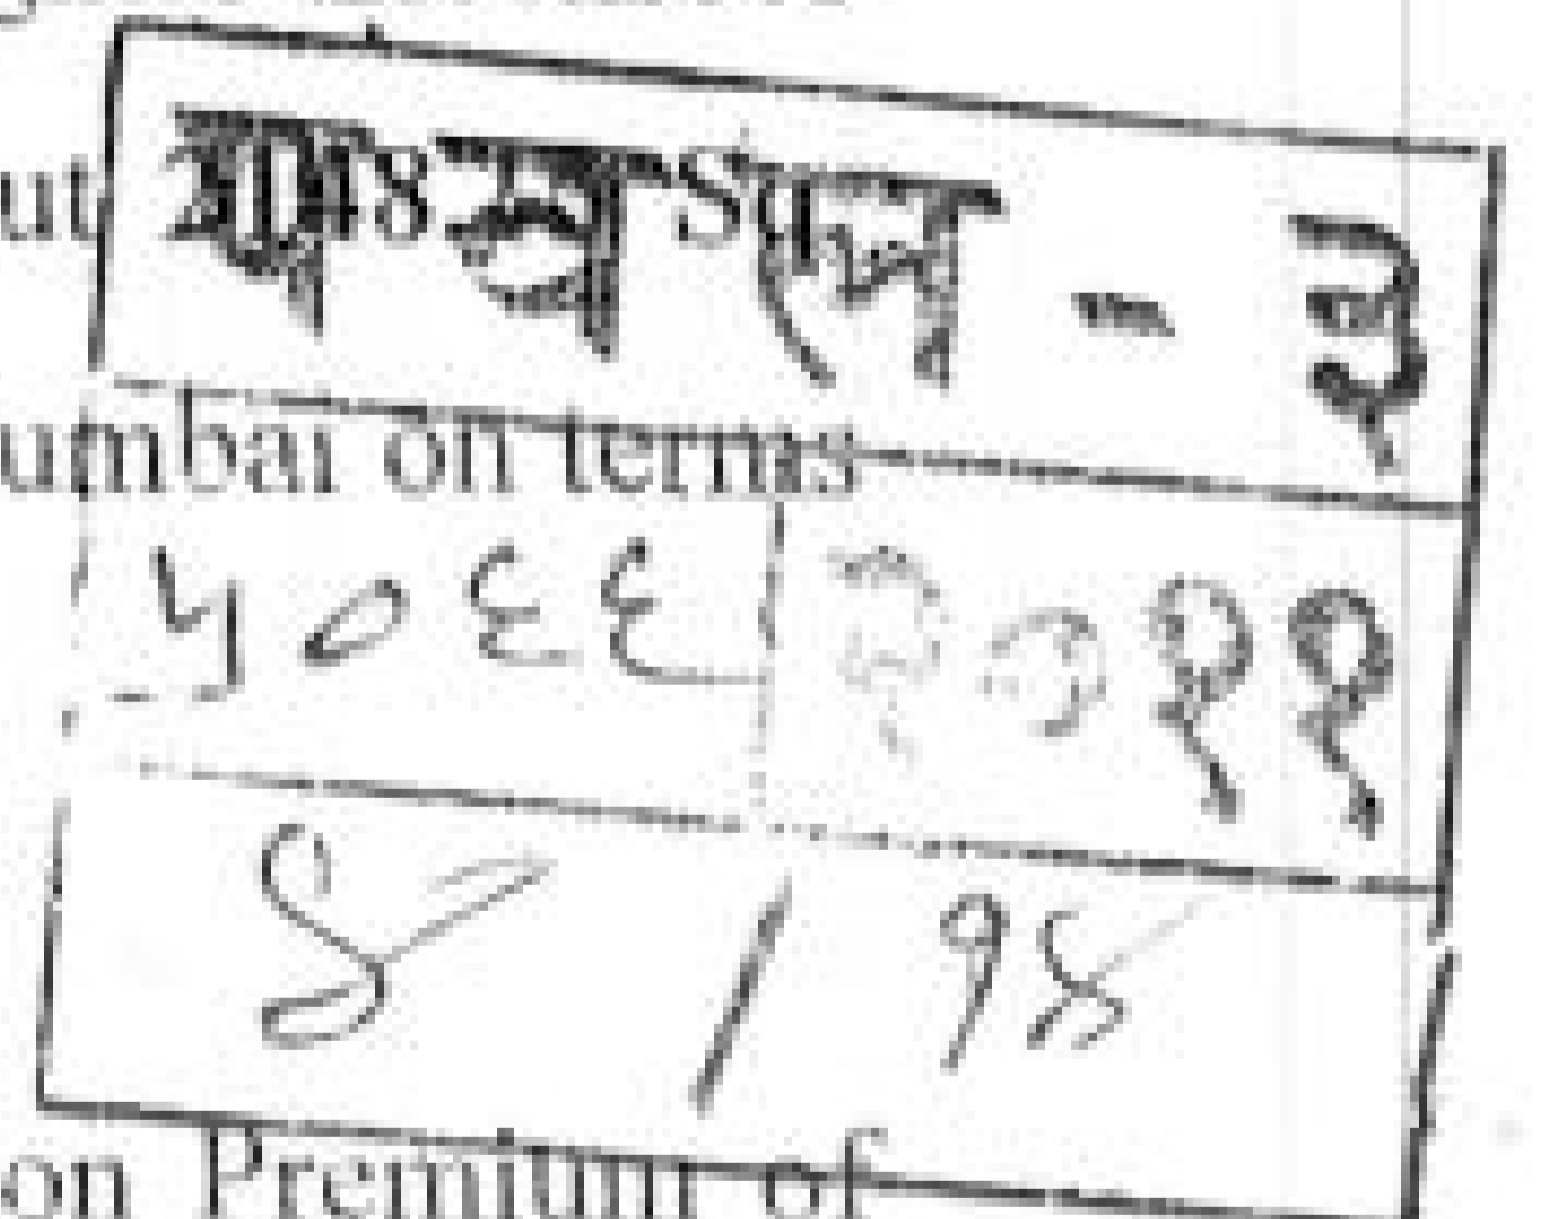 ut Sq
पवल - ३
umbai on terms
५०६६ २०११
४ / १४
on Premium of